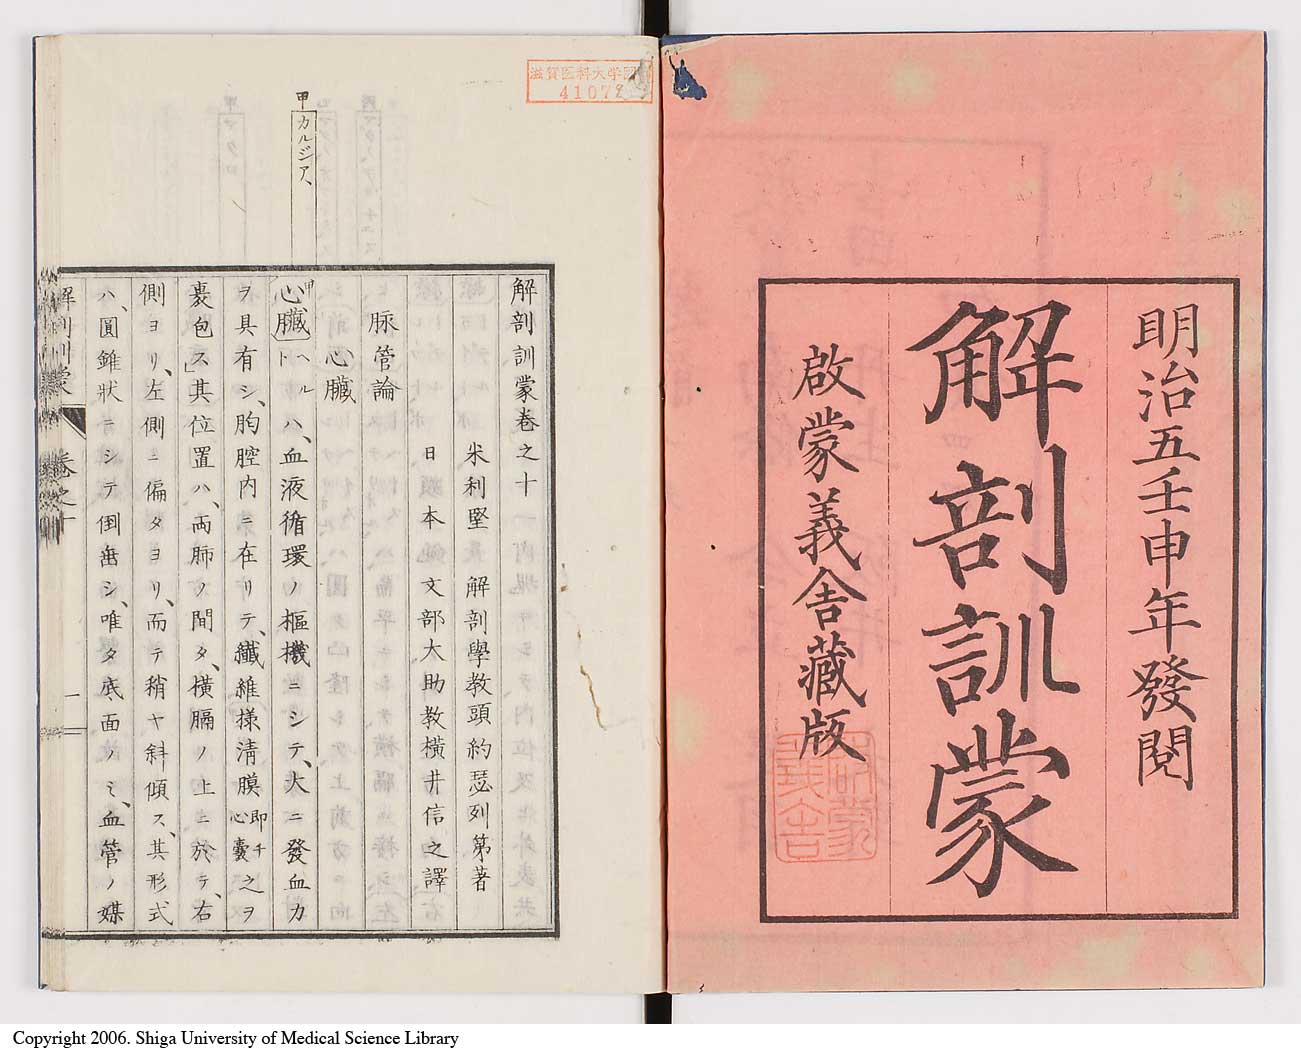 明治五壬申年發閲
解剖訓蒙
啟蒙義舍藏版
滋賀医科大学図
41072
甲カルジア、
解剖訓蒙卷之十
米利堅 解剖學教頭約瑟列第著
日本 文部大助教橫井信之譯
脉管論
心臓
甲心臓ヘルトハ、血液循環ノ樞機ニシテ、大ニ發血力
ヲ具有シ、胸腔内ニ在リテ、纖維樣淸膜即チ心囊之ヲ
裹包ス」其位置ハ、両肺ノ間タ、橫膈ノ上ニ於テ、右
側ヨリ、左側ニ偏タヨリ、而テ稍ヤ斜傾ス、其形式
ハ、圓錐狀ニシテ倒垂シ、唯タ底面ノミ、血管ノ媒
解剖訓蒙 卷之十 一
Copyright 2006. Shiga University of Medical Science Library